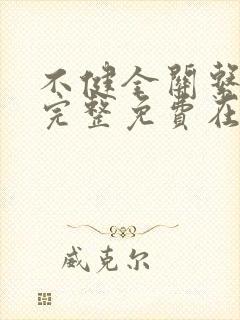 不健全關繫
完整免費在
威克尔